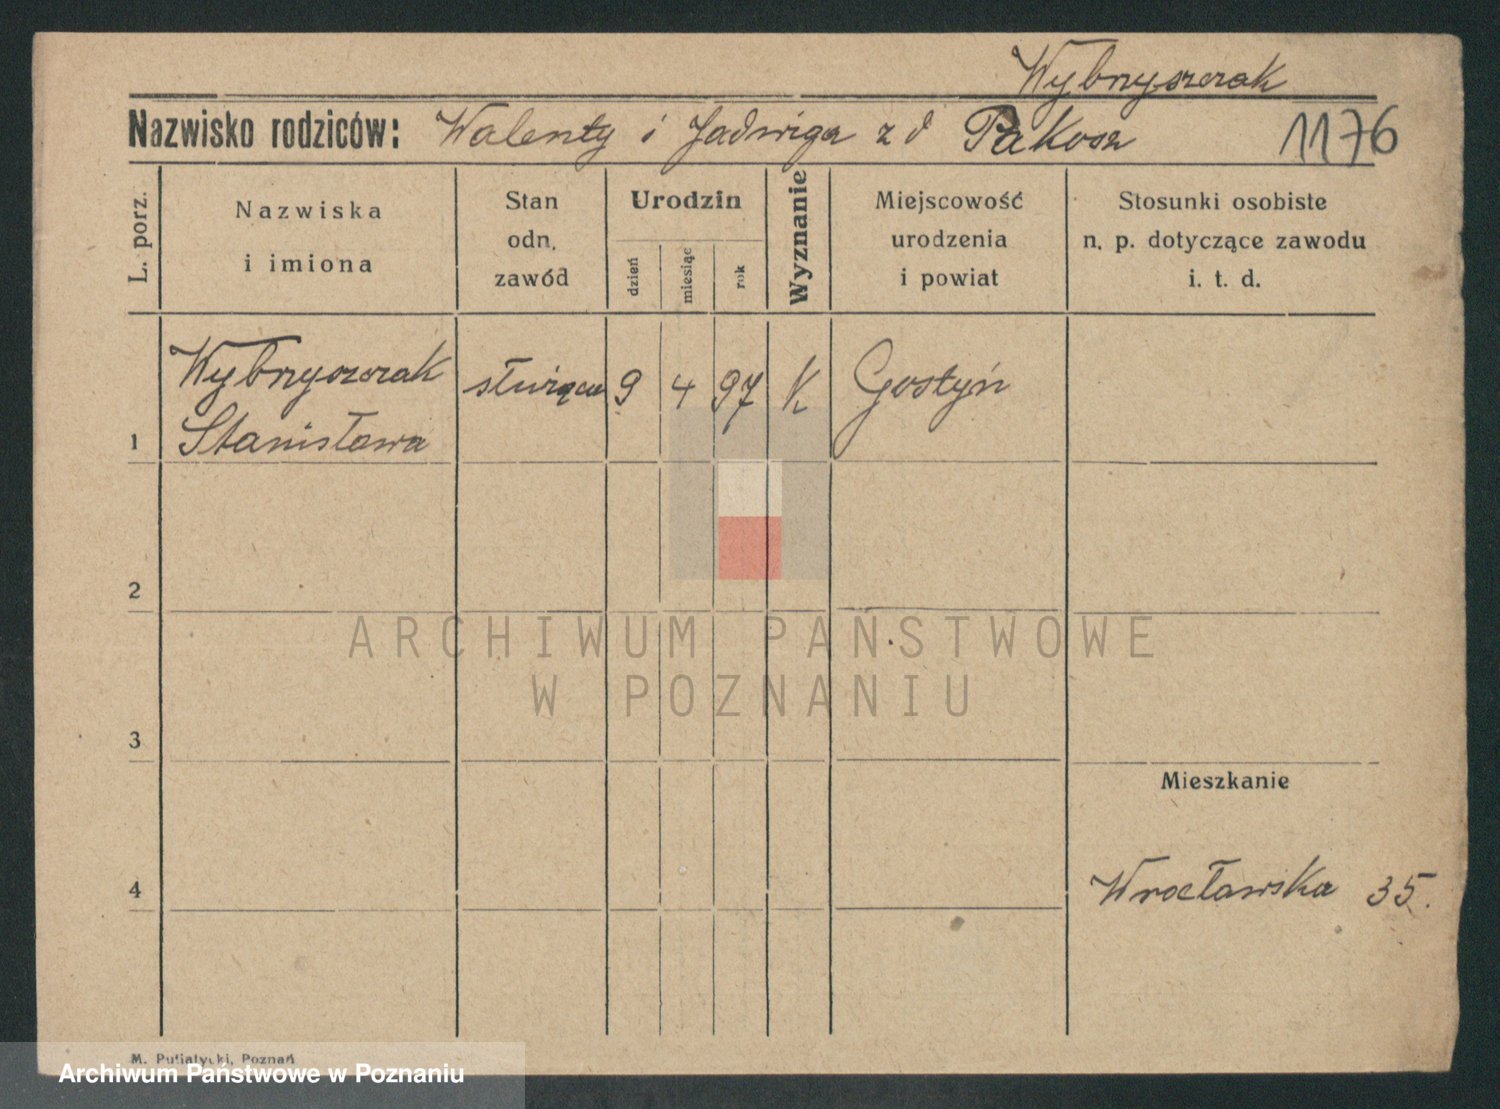 Wybnyszczak
Nazwisko rodziców: Walenty i Jadwiga z d Pakosz 1176
L. porz.
Nazwiska
i imiona
Stan
odn.
zawód
Urodzin
dzień
miesiąc
rok
Wyznanie
Miejscowość
urodzenia
i powiat
Stosunki osobiste
n. p. dotyczące zawodu
i. t. d.
1
Wybnyszczak
Stanisława
służąca
9
4
97
K
Gostyń
2
3
4
Mieszkanie
Wrocławska 35.
ARCHIWUM PAŃSTWOWE
W POZNANIU
M. Putiatycki, Poznań
Archiwum Państwowe w Poznaniu